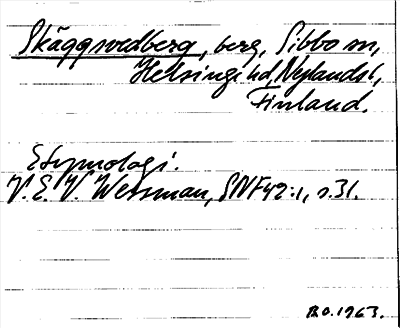 Skäggsvedberg, berg, Sibbo sn,
Helsinge hd, Nylands l,
Finland.
Etymologi.
V. E. V. Wessman, SNF 42:1, s. 31.
B.O. 1963.